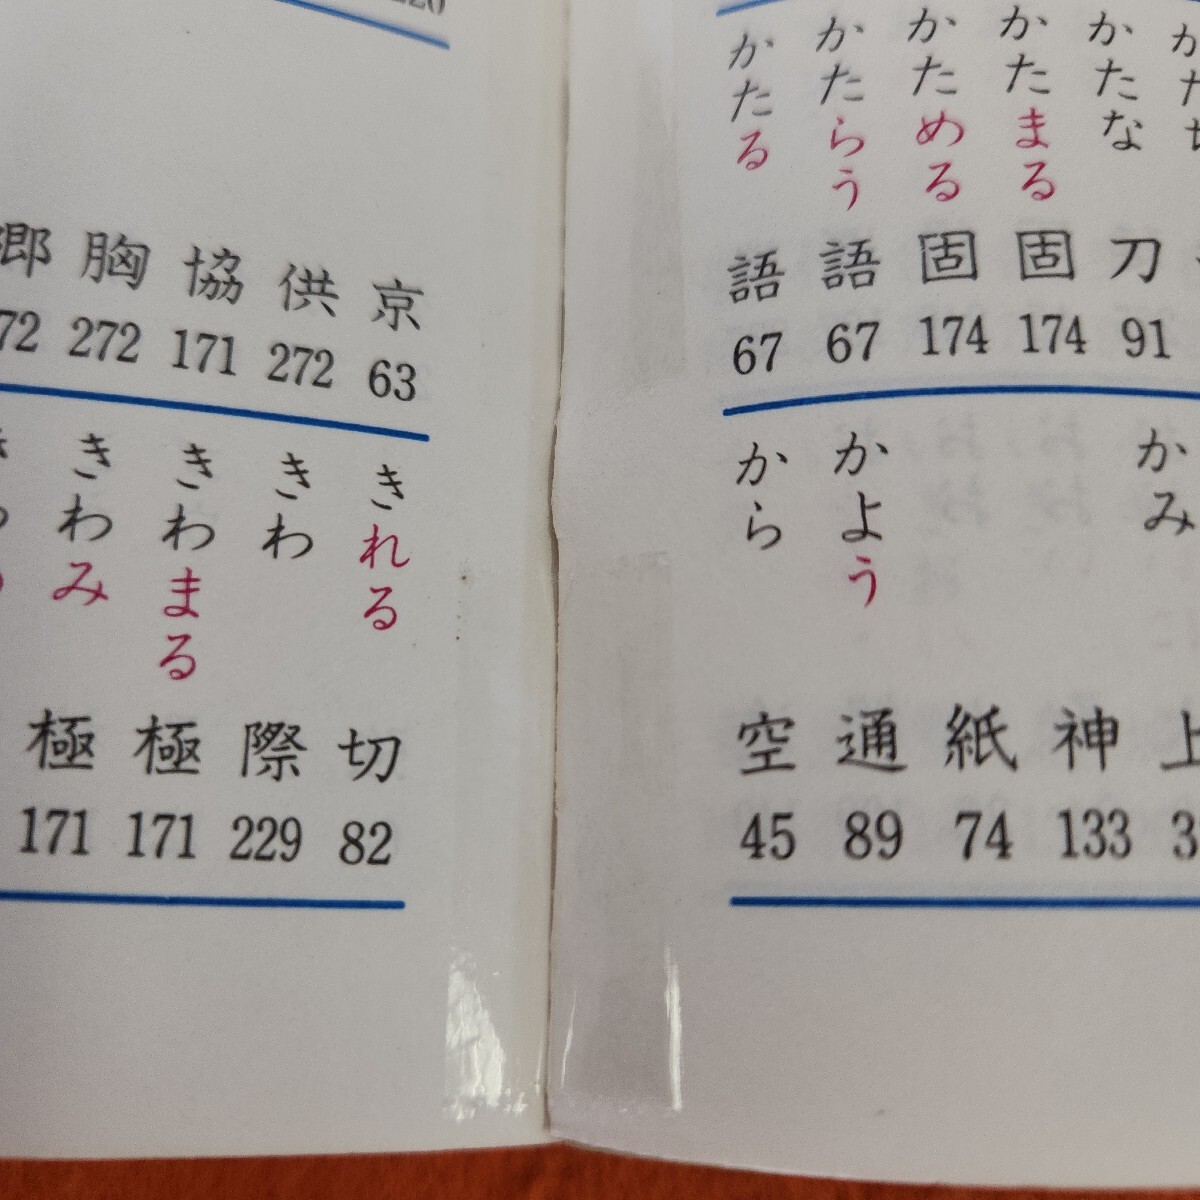 かたな 刀 91
かたまる 固 174
かためる 固 174
かたらう 語 67
かたる 語 67
かみ
神 133
紙 74
かよう 通 89
から 空 45
京 63
供 272
協 171
胸 272
きれる 切 82
きわ 際 229
きわまる 極 171
きわみ 極 171